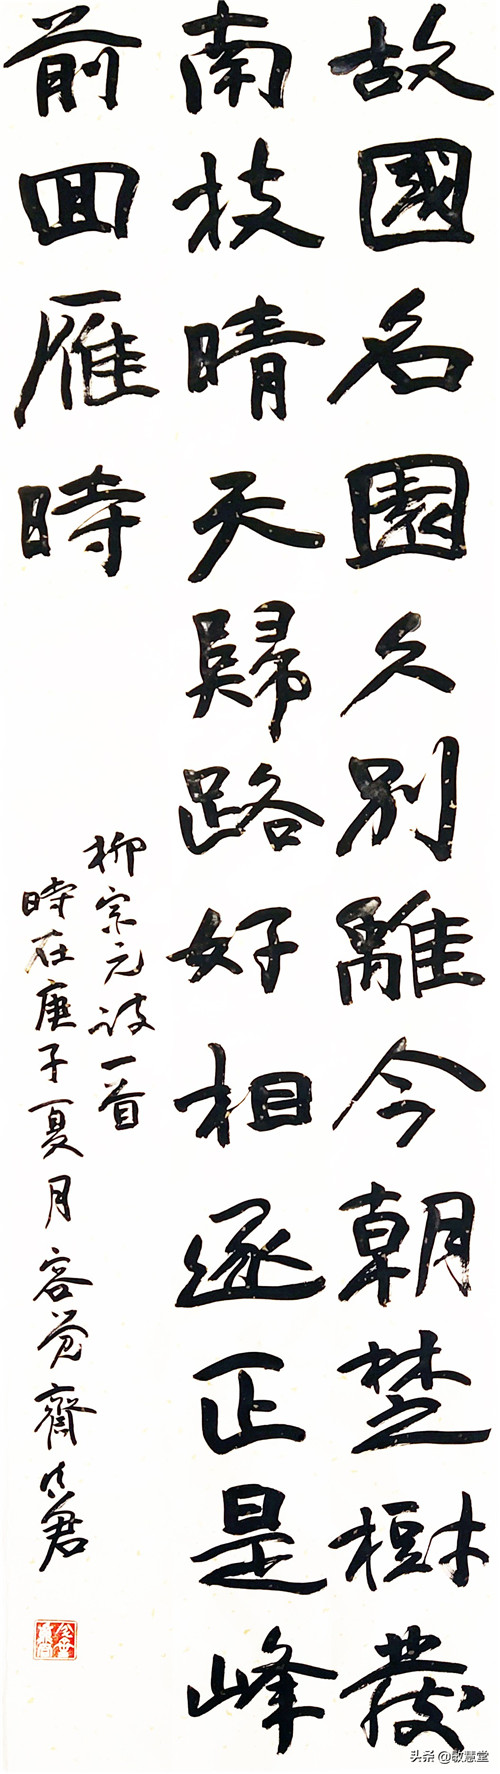 故國名園久別離今朝楚樹發
南枝晴天歸路好相逐正是峰
前回雁時
柳宗元诗一首
時在庚子夏月容觉齋君
头条@敬慧堂